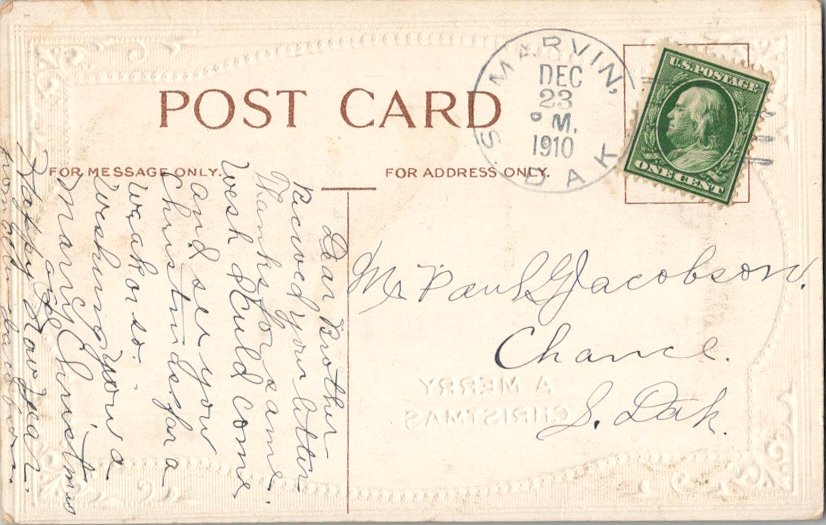 POST CARD
FOR MESSAGE ONLY.
FOR ADDRESS ONLY.
MARVIN,
S. DAK
DEC
23
P M.
1910
U.S. POSTAGE
ONE CENT
Dear Brother
Recived your letter
Thanks for same.
Wesh I culd come
and see you
Christmds for a
Weak or so.
Weshing you a
Marry Christmas
and
Happy New year.
from
Mr Paul Jacobson.
Chance.
S. Dak.
A MERRY
CHRISTMAS